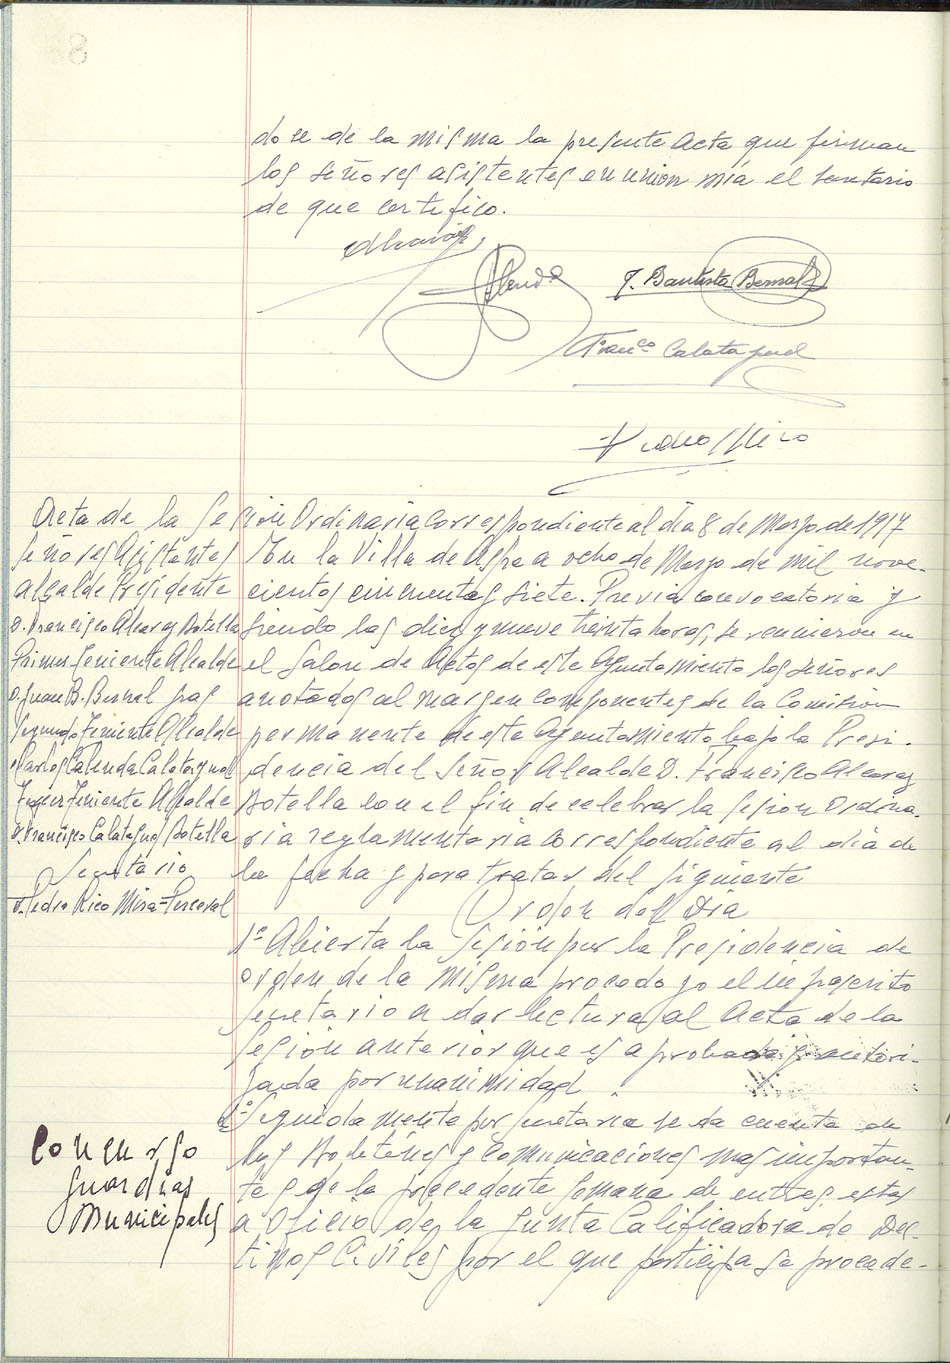 dose de la misma la presente Acta que firman
los señores asistentes en union mía el Secretario
de que certifico.
Alvarez
J. Bautista Bernal
Franco Calatayud
Pedro Rico
Acta de la Sesión Ordinaria correspondiente al día 8 de Marzo de 1957
Señores Asistentes
Alcalde Presidente
D. Francisco Alvarez Botella
Primer Teniente Alcalde
D. Juan B. Bernal
Segundo Teniente Alcalde
D. Carlos Calenda Calatayud
Tercer Teniente Alcalde
D. Francisco Calatayud Botella
Secretario
D. Pedro Rico Mira-Perceval
En la Villa de Aspe a ocho de Marzo de mil nove-
cientos cincuenta y siete. Previa convocatoria y
siendo las diez y nueve treinta horas, se reunieron en
el Salon de Actos de este Ayuntamiento los señores
anotados al margen componentes de la Comisión
permanente de este Ayuntamiento bajo la Presi-
dencia del Señor Alcalde D. Francisco Alvarez
Botella con el fin de celebrar la sesion Ordina-
ria reglamentaria correspondiente al dia de
la fecha y para tratar del siguiente
Orden del Dia
1º Abierta la sesión por la Presidencia de
orden de la misma procedo yo el infrascrito
Secretario a dar lectura al Acta de la
sesión anterior que es aprobada y autori-
zada por unanimidad
2º Seguidamente por secretaria se da cuenta de
los Boletines y Comunicaciones mas importan-
tes de la precedente semana de entre estas
a Oficio de la Junta Calificadora de Des-
tinos Civiles por el que participa se procede-
Concurso
Guardias
Municipales